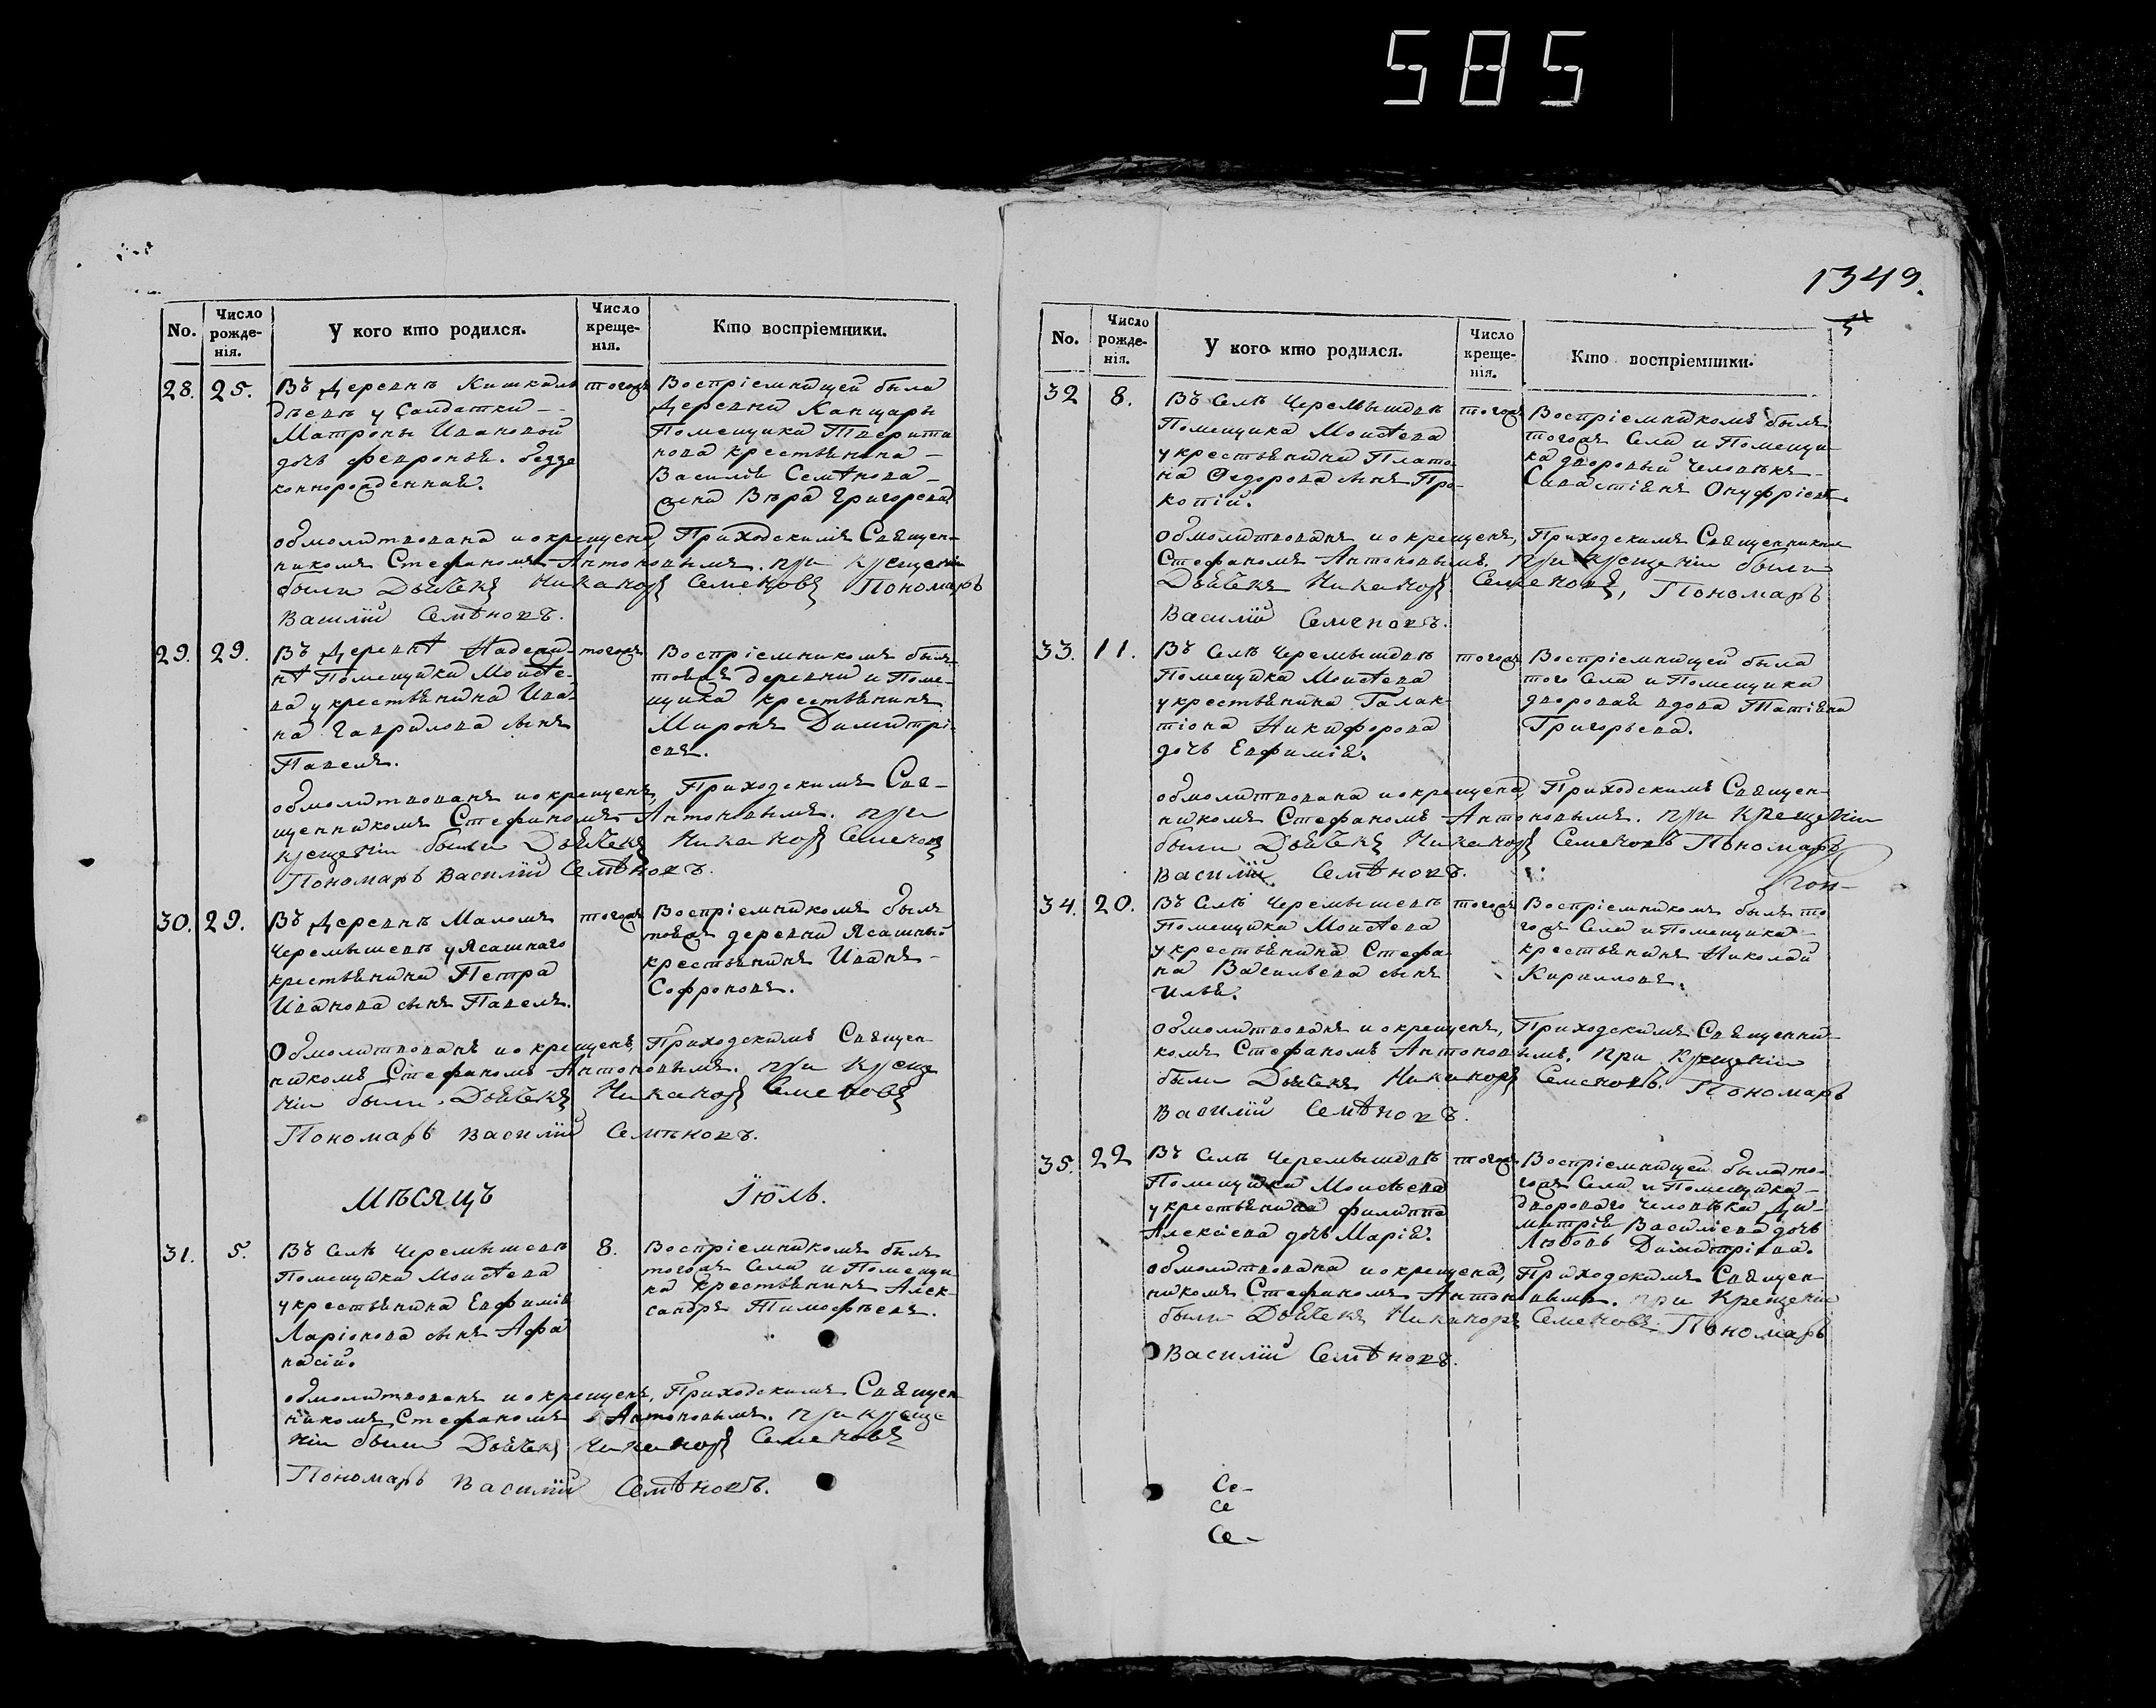 585
No.
Число рожде-нія.
У кого кто родился.
Число креще-нія.
Кто воспріемники.
28. 25.
Въ деревнѣ
дѣевѣ у Салдатки -
Матроны Ивановой
дочь Февронья.
того
Воспріемницей была
деревни Канцары
Помещика
крестьянина -
Василія Семѣнова -
жена Вѣра Григорьева
обмолитвована и окрещена, Приходскимъ Священ-
никомъ Стефаномъ Антоновымъ. при крещеніи
были Дьячекъ Никаноръ Семеновъ Пономарь
Василій Семѣновъ.
29. 29.
Въ деревнѣ
нѣ Помещика Моисѣе-
ва у крестьянина Ива-
на Гаврилова сынъ
Павелъ.
тогожъ
Воспріемникомъ былъ
тоеяжъ деревни и Поме-
щика крестьянинъ
Миронъ Димитрі-
евъ.
обмолитвованъ и окрещенъ, Приходскимъ Свя-
щенникомъ Стефаномъ Антоновымъ. при
крещеніи были Дьячекъ Никаноръ Семеновъ
Пономарь Василій Семѣновъ.
30. 29.
Въ деревнѣ Маломъ
Черемышевѣ у Ясашнаго
крестьянина Петра
Иванова сынъ Павелъ.
тогожъ
Воспріемникомъ былъ
тоеяжъ деревни Ясашный
крестьянинъ Иванъ -
Софроновъ.
Обмолитвованъ и окрещенъ, Приходскимъ Священ-
никомъ Стефаномъ Антоновымъ. при креще
ніи были Дьячекъ Никаноръ Семеновъ
Пономарь Василій Семѣновъ.
Мѣсяцъ Іюль.
31. 5.
Въ Селѣ Черемышевѣ
Помещика Моисѣева
у крестьянина Евфимія
Ларіонова сынъ Афа
насій.
8.
Воспріемникомъ былъ
тогожъ Села и Помещи
ка крестьянинъ Алек-
сандръ Тимофѣевъ.
обмолитвованъ и окрещенъ, Приходскимъ Священ
никомъ Стефаномъ Антоновымъ. при креще
ніи были Дьячекъ Никаноръ Семеновъ
Пономарь Василій Семѣновъ.
1349.
No.
Число рожде-нія.
У кого кто родился.
Число креще-нія.
Кто воспріемники.
32 8.
Въ Селѣ Черемышевѣ
Помещика Моисѣева
у крестьянина Плато-
на Федорова сынъ Про-
копій.
тогожъ
Воспріемникомъ былъ
тогожъ Села и Помещи-
ка дворовый человѣкъ -
Савастіянъ Онуфріевъ.
обмолитвованъ и окрещенъ, Приходскимъ Священникомъ
Стефаномъ Антоновымъ. при крещеніи были
Дьячекъ Никаноръ Семеновъ, Пономарь
Василій Семеновъ.
33. 11.
Въ Селѣ Черемышевѣ
Помещика Моисѣева
у крестьянина Галак-
тіона Никифорова
дочь Евфимія.
тогожъ
Воспріемницей была
того Села и Помещика
дворовая вдова Татіяна
Григорьева.
обмолитвована и окрещена, Приходскимъ Священ-
никомъ Стефаномъ Антоновымъ. при Крещеніи
были Дьячекъ Никаноръ Семеновъ Пономарь
Василій Семѣновъ.
34. 20.
Въ Селѣ Черемышевѣ
Помещика Моисѣева
у крестьянина Стефа-
на Васильева сынъ
Илья.
тогожъ
Воспріемникомъ былъ то-
гожъ Села и Помещика -
крестьянинъ Николай
Кирилловъ.
Обмолитвованъ и окрещенъ, Приходскимъ Священни-
комъ Стефаномъ Антоновымъ. при Крещеніи
были Дьячекъ Никаноръ Семеновъ. Пономарь
Василій Семѣновъ.
35. 22
Въ Селѣ Черемышевѣ
Помещика Моисѣева
у крестьянина Филиппа
Алексіева дочь Марія.
тогожъ
Воспріемницей была то-
гожъ Села и Помещика -
двороваго человѣка Ди-
митрія Василіева дочь
Любовь Димитріева.
обмолитвована и окрещена, Приходскимъ Священ
никомъ Стефаномъ Антоновымъ. при Крещеніи
были Дьячекъ Никаноръ Семеновъ Пономарь
Василій Семѣновъ.
Се-
Се
Се-